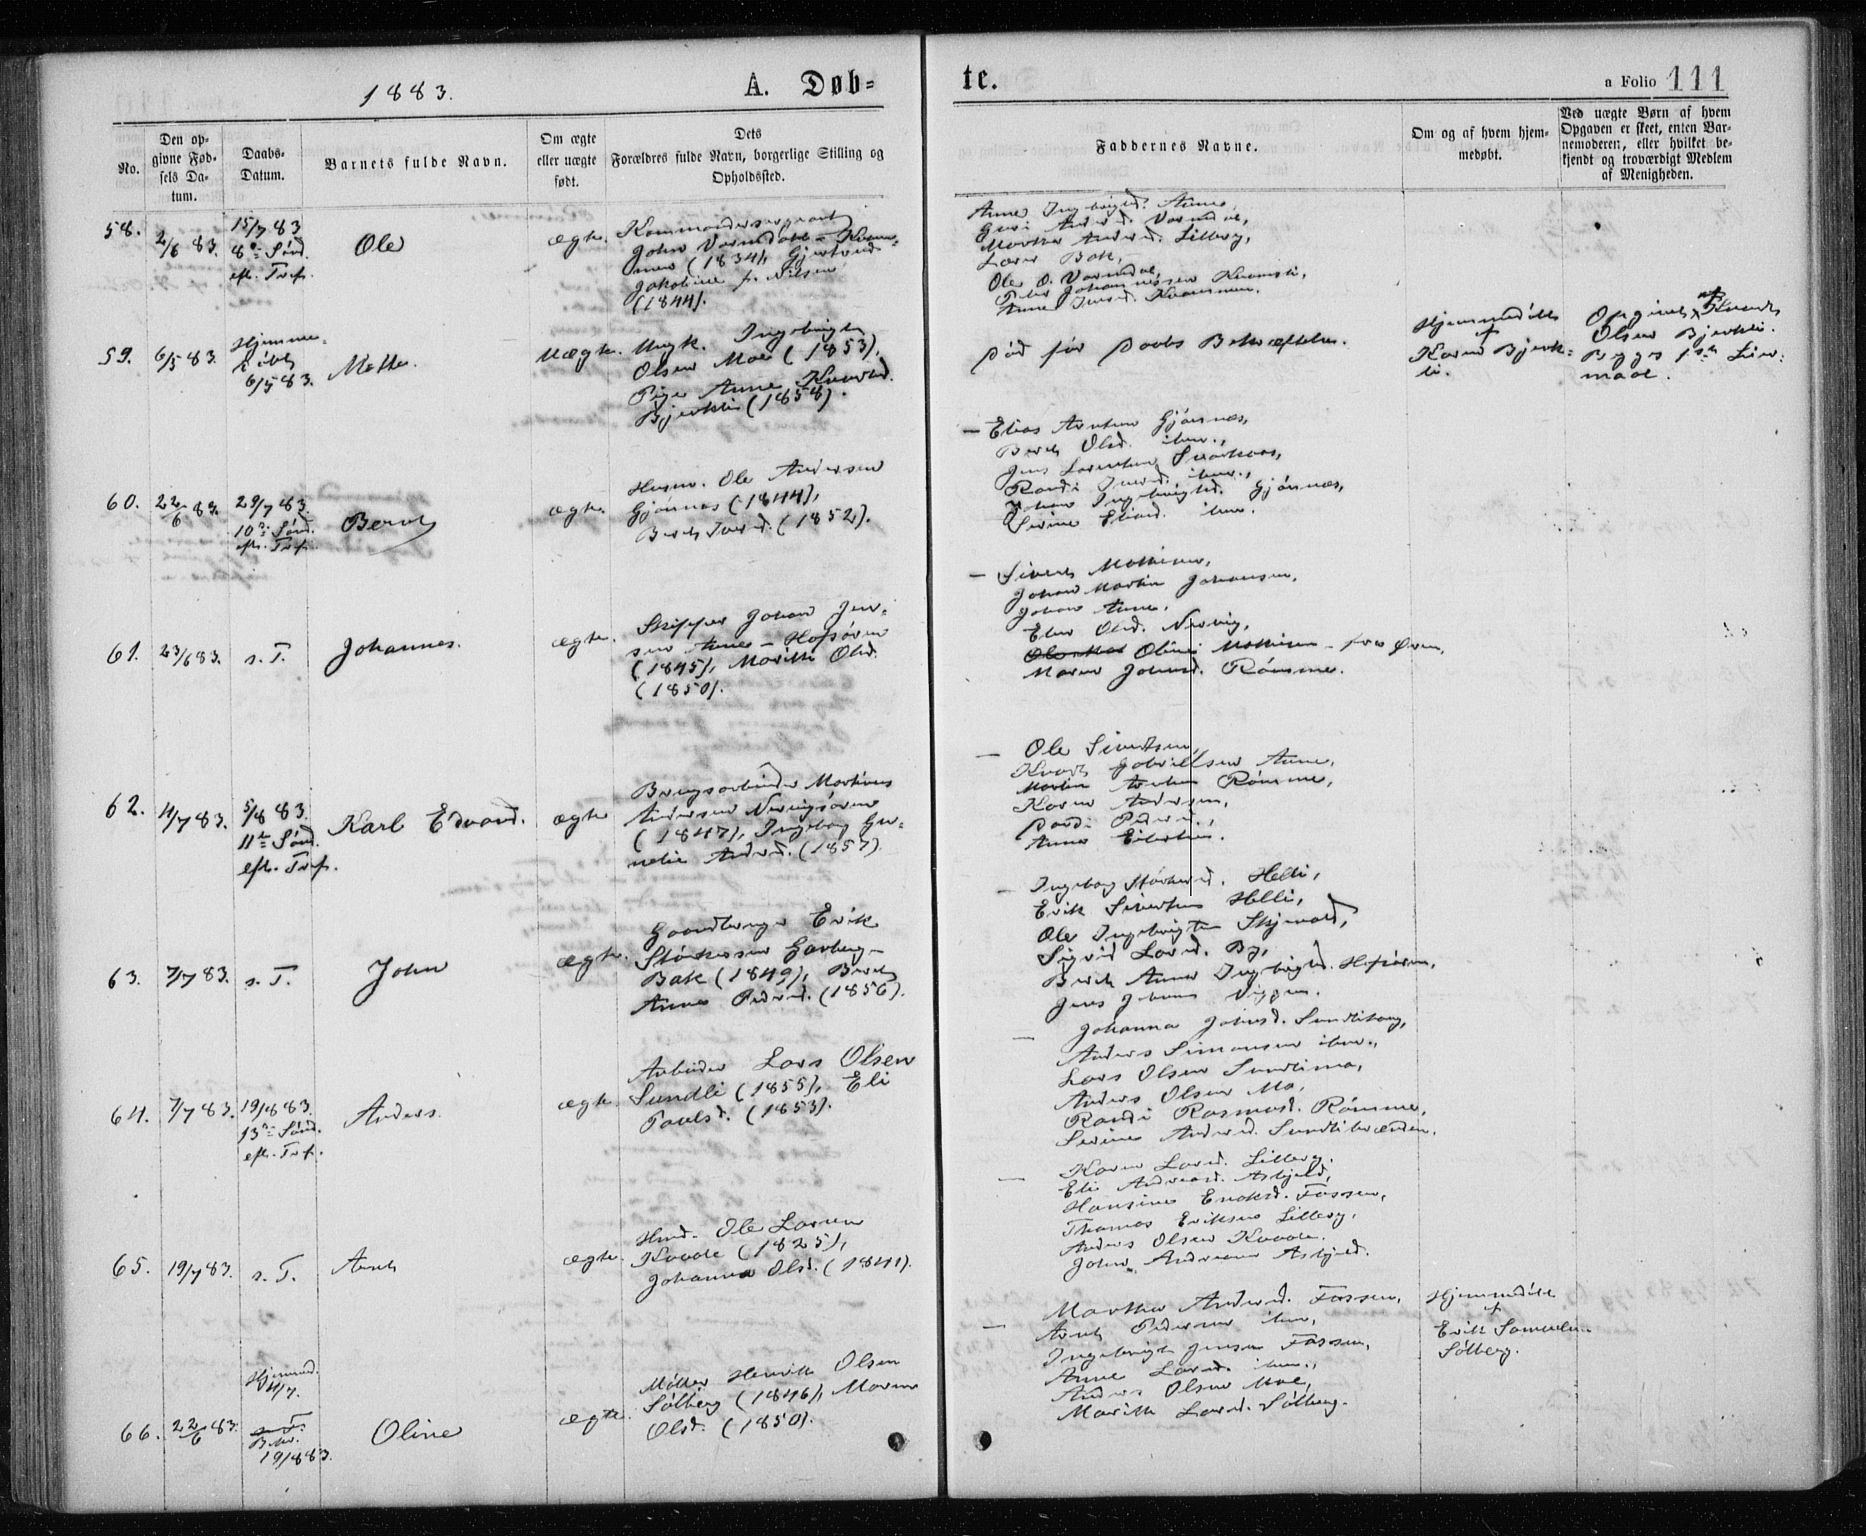 1883.
A. Døb-
te.
a Folio 111
No.
Den op-
givne Fød-
sels Da-
tum.
Daabs-
Datum.
Barnets fulde Navn.
Om ægte
eller uægte
født.
Dets
Forældres fulde Navn, borgerlige Stilling og
Opholdssted.
Faddernes Navne.
Om og af hvem hjem-
medøbt.
Ved uægte Børn af hvem
Opgaven er skeet, enten Bar-
nemoderen, eller hvilket be-
kjendt og troværdigt Medlem
af Menigheden.
58.
2/6 83.
15/7 83
8de Sønd.
eft. Tref.
Ole
ægte.
John Vormdahl
(1834), Gjertrud
Jakobine f. Nilsen
(1844).
Anne Ingebrigtd.
Guri Andersd. Vormdal,
Martha Andersd. Lilleberg,
Bak,
Ole O. Vormdal,
Peter Johannessen
Anne
59.
6/5 83.
Hjemme-
døbt
6/5 83.
Mette.
Uægte.
Ungk. Ingebrigt
Olsen Moe (1853),
Pige Anne Knudtsd.
Bjerkli (1858).
Død før Daabs Bekræftelse.
Hjemmedøbt
af
Karen Bjerk-
li.
Opgivet af Knudt
Olsen Bjerkli.
Begges 1ste Leier-
maal.
60.
22/6 83.
29/7 83.
10de Sønd.
eft. Tref.
Berit
ægte.
Husm. Ole Andersen
Gjønnes (1844),
Berit Iversd. (1852).
— Elias Arntsen Gjønnes,
Berit Olsd. ibm.,
Jens Larentsen
Randi ibm.,
Johan Ingebrigtsd. Gjønnes,
Serine Eliasd. ibm.
61.
23/6 83.
s. T.
Johannes.
ægte.
Skipper Johan Jen-
sen Aune - Hofsøren
(1845), Marith Olsd.
(1850).
— Sivert Mathisen,
Johan Martin Johansen,
Johan Aune,
Elen Olsd. Nervig,
Oline Mathisen - fra Øren,
Maren Johnsd. Rømme.
62.
11/7 83.
5/8 83.
11te Sønd.
eft. Tref.
Karl Edvard.
ægte
Brugsarbeider Martinus
Andersen Nervigsøren
(1847), Ingeborg Gu-
nelie Andersd. (1857).
— Ole Sivertsen,
Knudt Gabrielsen Aune,
Martin Arntsen Rømme,
Karen Andersen,
Pedersd.,
Anna Eilertsen.
63.
7/7 83.
s. T.
John
ægte.
Gaardbruger Erik
Størkersen Garberg-
Bak (1849), Berit
Anne Pedersd. (1856).
— Ingeborg Størkersd. Helli,
Erik Sivertsen Helli,
Ole Ingebrigtsen Skjenald,
Sigrid Larsd. By,
Berit Anna Ingebrigtsd. Hofsøren,
Jens Johnsen Viggen.
64.
7/7 83.
19/8 83.
13de Sønd.
eft. Tref.
Anders.
ægte.
Arbeider Lars Olsen
Sundli (1855), Eli
Paulsd. (1853).
— Johanna Johnsd. Sundlihaug,
Anders Simonsen ibm.,
Lars Olsen Sundlimo,
Anders Olsen Mo,
Randi Rasmusd. Rømme,
Serine Andersd. Sundlibrænden.
65.
19/7 83.
s. T.
Arnt
ægte.
Husm. Ole Larsen
Kvaale (1825),
Johanna Olsd. (1841).
— Karen Larsd. Lilleberg.
Eli Andreasd. Asbjeld,
Hansine Eriksd. Fossen,
Thomas Eriksen Lilleberg,
Anders Olsen Kvaale.
John Andreasen Asbjeld.
66.
22/6 83.
Hjemmed.
4/7.
s. T.
Bekr.
19/8 83.
Oline
ægte.
Møller Henrik Olsen
Sølberg (1846), Maren
Olsd. (1850).
— Martha Andersd. Fossen,
Arnt Pedersen ibm,
Ingebrigt Jensen Fossen,
Anne Larsd. ibm.,
Anders Olsen Moe,
Marith Larsd. Sølberg.
Hjemmedøbt
af
Erik Samuelsen
Sølberg.